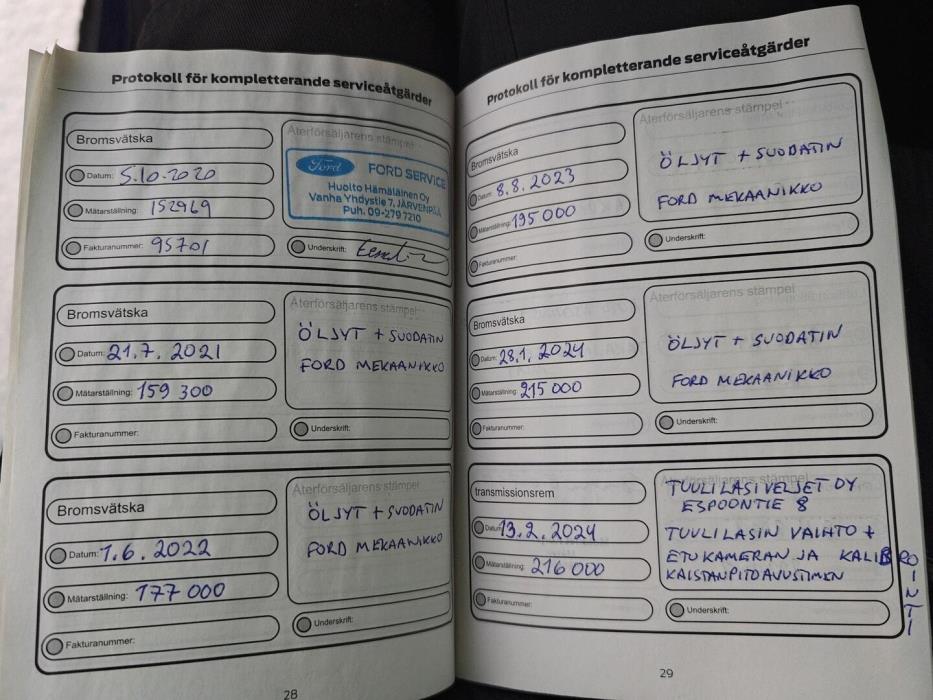 Protokoll för kompletterande serviceåtgärder
Bromsvätska
Datum: 5.10.2020
Mätarställning: 152969
Fakturanummer: 95701
Återförsäljarens stämpel
Ford FORD SERVICE
Huolto Hämäläinen Oy
Vanha Yhdystie 7, JÄRVENPÄÄ
Puh. 09-279 7210
Underskrift:
Bromsvätska
Datum: 21.7. 2021
Mätarställning: 159 300
Fakturanummer:
Återförsäljarens stämpel
ÖLJYT + SUODATIN
FORD MEKAANIKKO
Underskrift:
Bromsvätska
Datum: 1.6. 2022
Mätarställning: 177 000
Fakturanummer:
Återförsäljarens stämpel
ÖLJYT + SUODATIN
FORD MEKAANIKKO
Underskrift:
28
Protokoll för kompletterande serviceåtgärder
Bromsvätska
Datum: 8.8. 2023
Mätarställning: 195 000
Fakturanummer:
Återförsäljarens stämpel
ÖLJYT + SUODATIN
FORD MEKAANIKKO
Underskrift:
Bromsvätska
Datum: 28.1. 2024
Mätarställning: 215 000
Fakturanummer:
Återförsäljarens stämpel
ÖLJYT + SUODATIN
FORD MEKAANIKKO
Underskrift:
transmissionsrem
Datum: 13.2. 2024
Mätarställning: 216 000
Fakturanummer:
Återförsäljarens stämpel
TUULILASIVELJET OY
ESPOONTIE 8
TUULILASIN VAIHTO +
ETUKAMERAN JA KALIBROINTI
KAISTANPITOAVUSTIMEN
Underskrift:
29